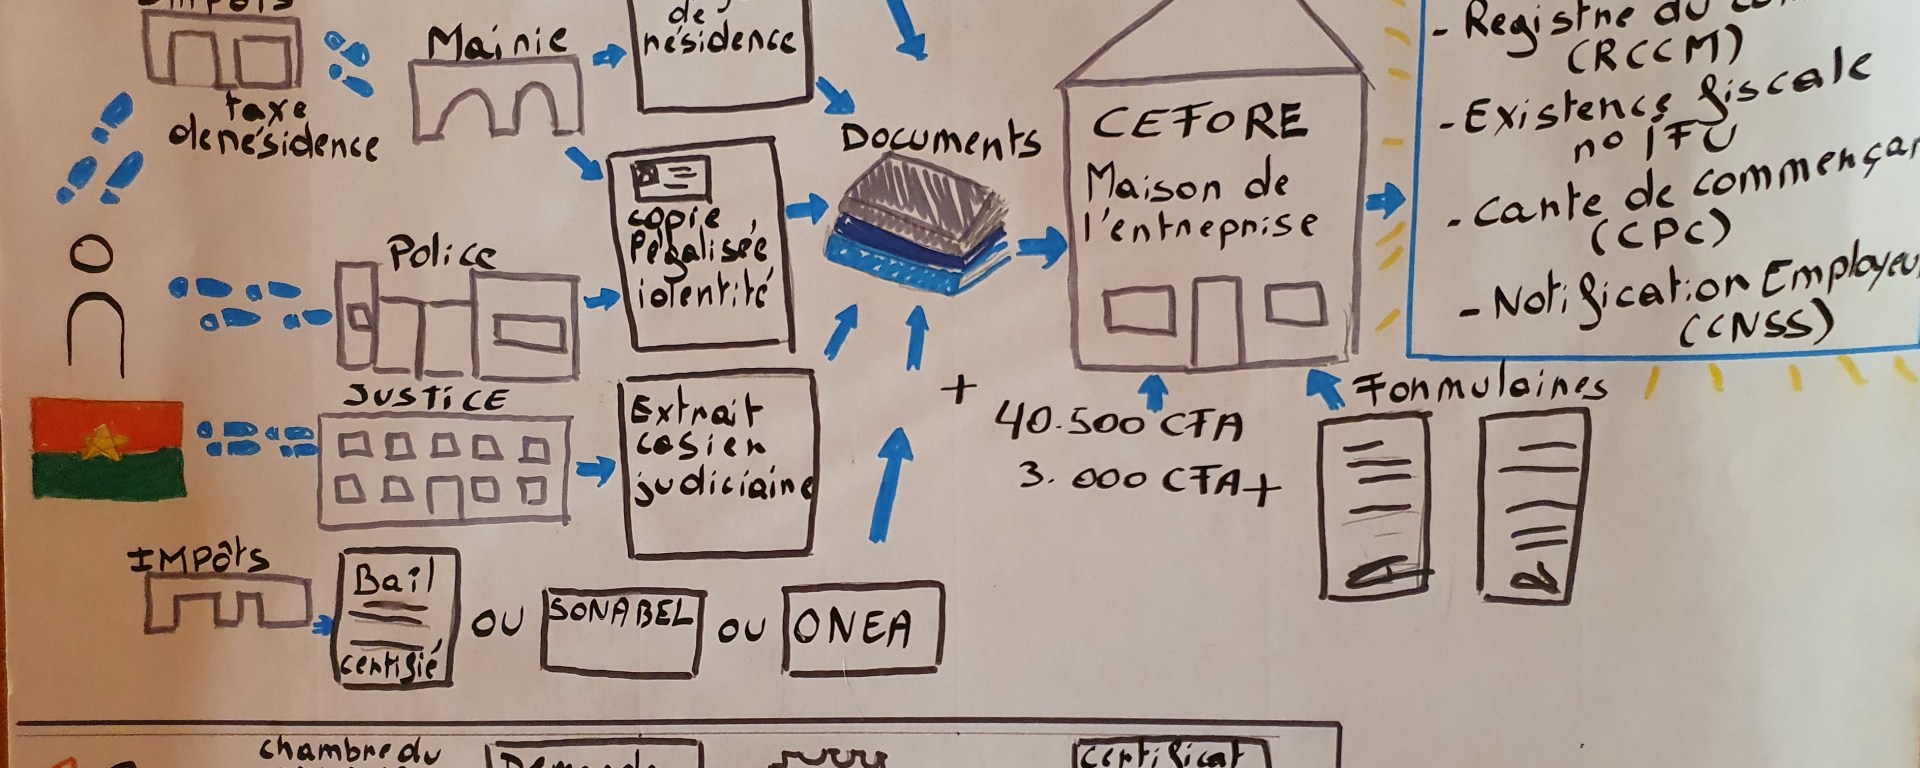 Impôts
taxe
de résidence
Mairie
de
résidence
Documents
CEFORE
Maison de
l'entreprise
- Registre du
(RCCM)
- Existence fiscale
no IFU
- Carte de commerçan
(CPC)
- Notification Employeu
(CNSS)
Police
copie
légalisée
identité
JUSTICE
Extrait
casier
judiciaire
+
40.500 CFA
3.000 CFA+
Formulaires
IMPôts
Bail
certifié
OU
SONABEL
OU
ONEA
chambre du
Demande
Certificat